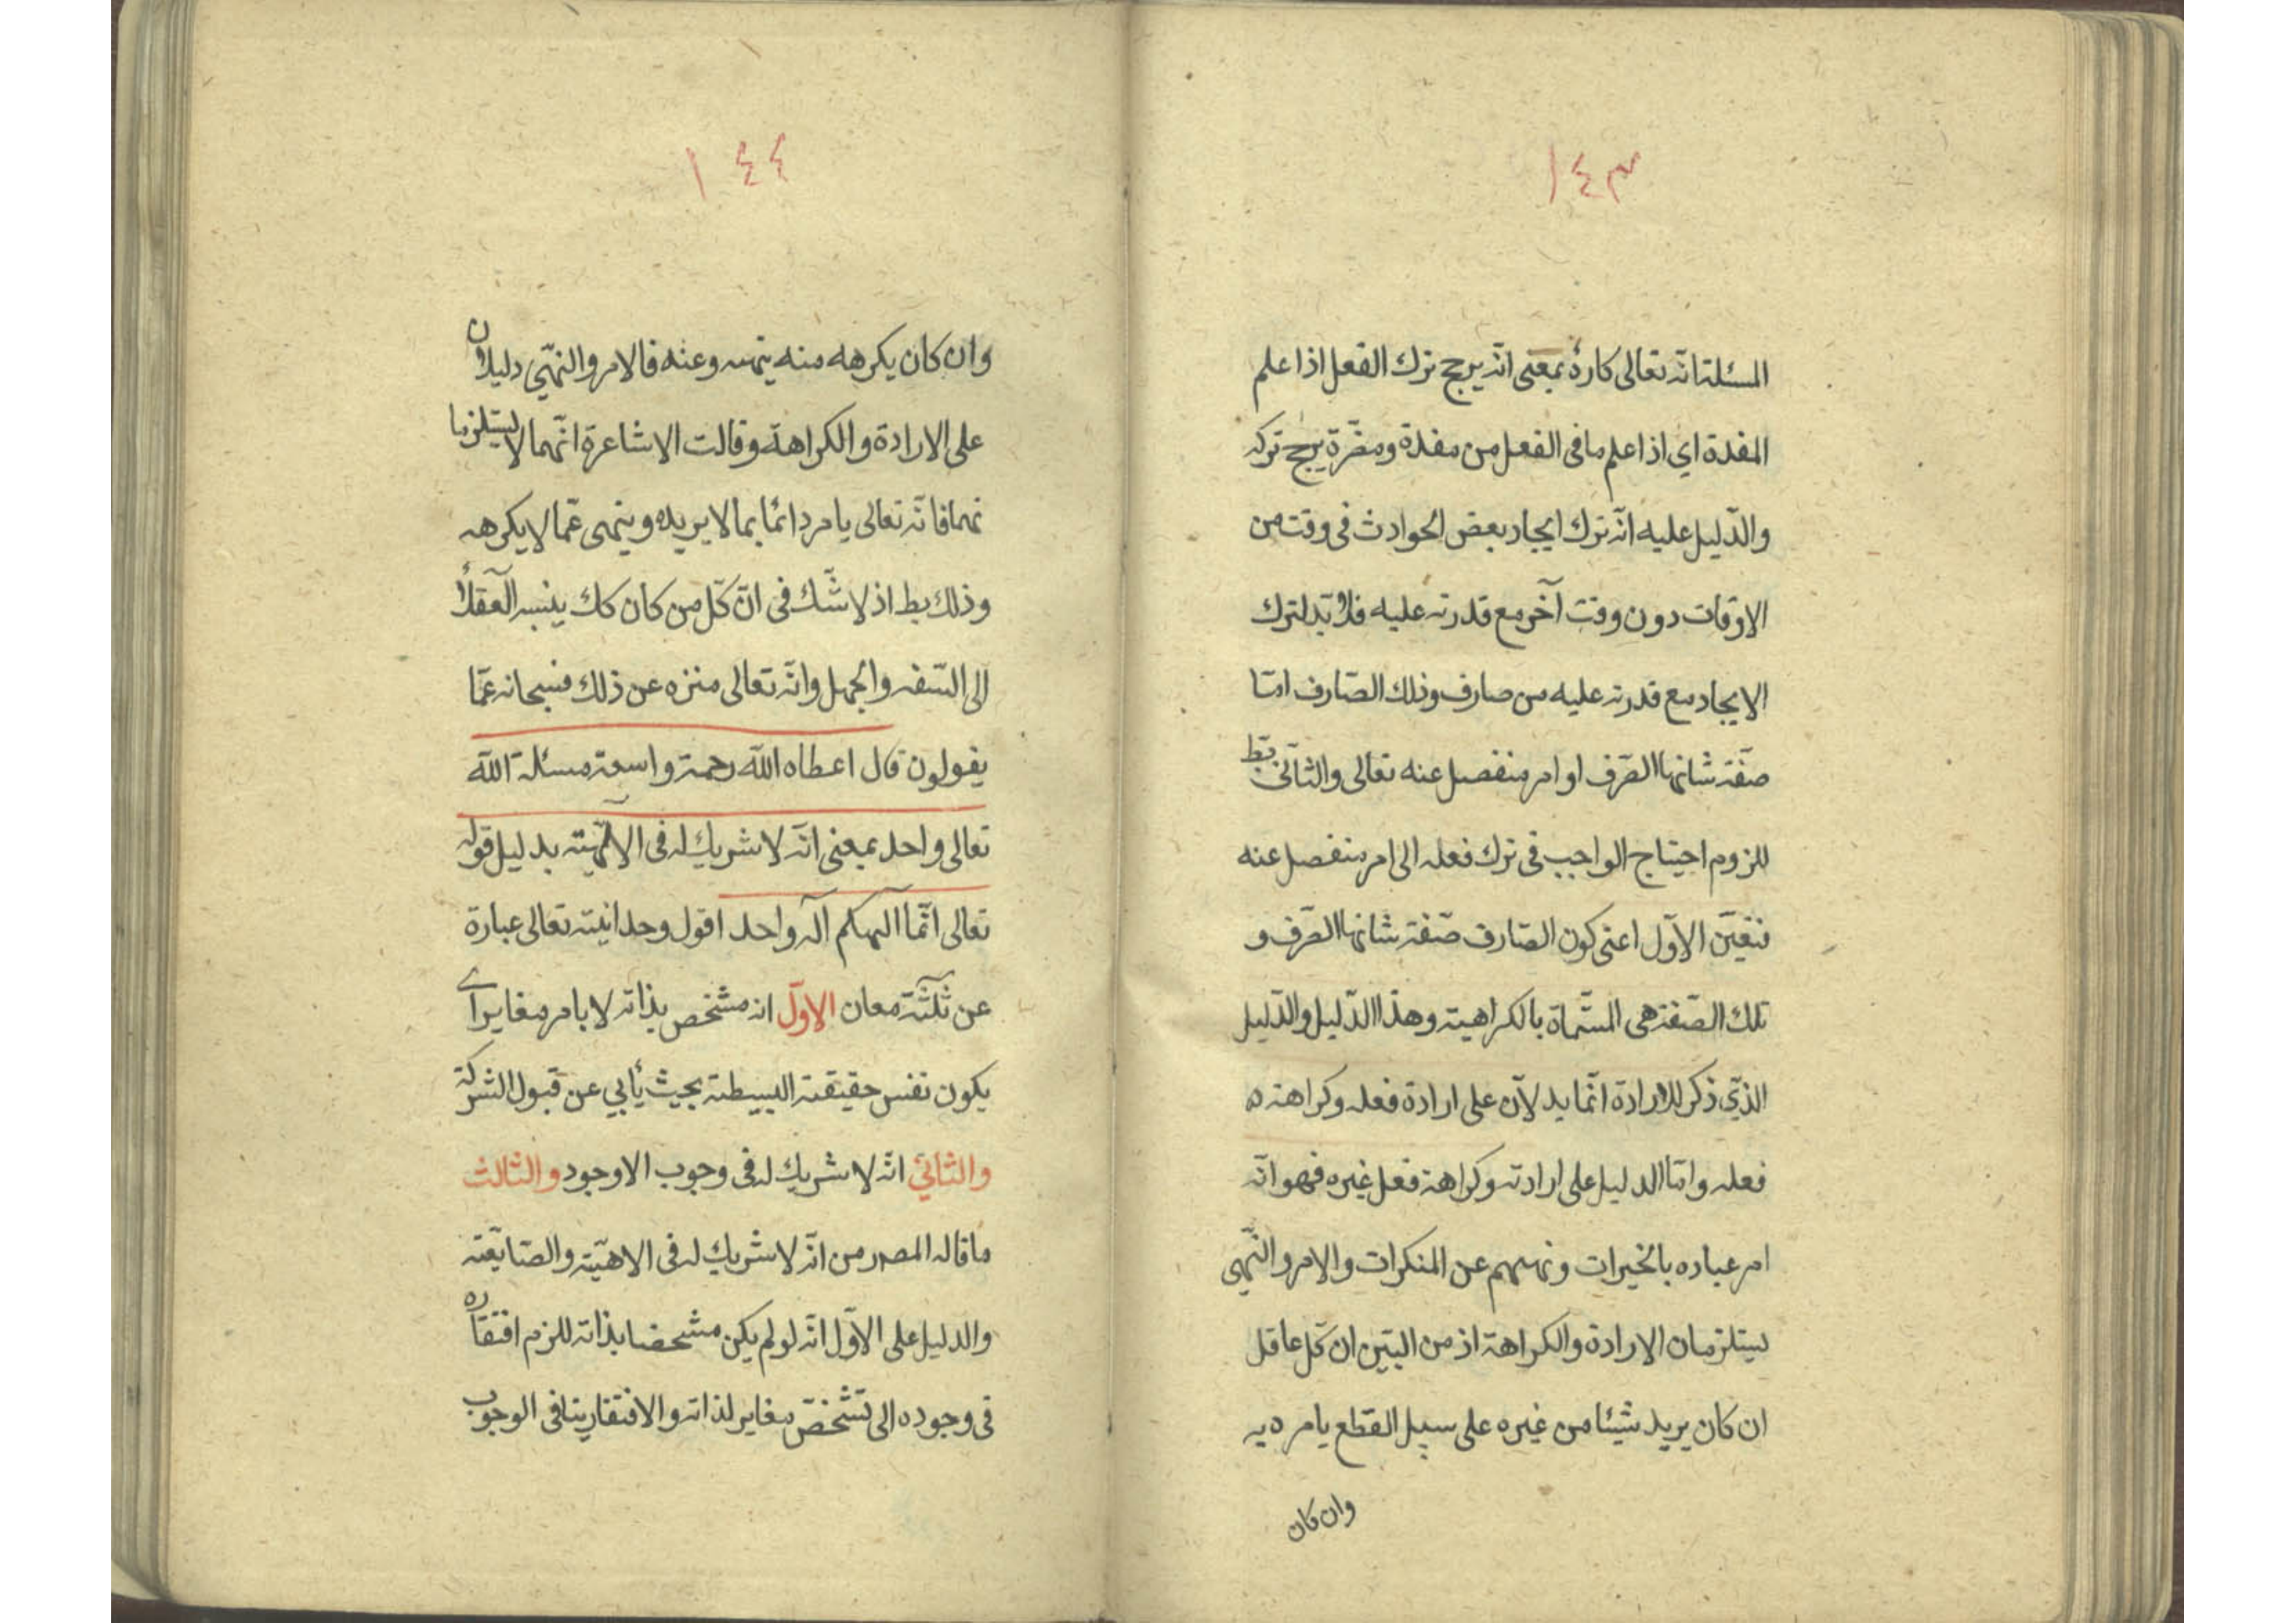 ١٤٣
المسئلة انّه تعالى كارهٌ بمعنى انّه يرجح ترك الفعل اذا علم
المفدة اي اذا علم ما فى الفعل من مفدة ومضّرة يرجح تركه
والدّليل عليه انّه ترك ايجاد بعض الحوادث فى وقت من
الاوقات دون وقت آخر مع قدرته عليه فلا بّد لترك
الايجاد مع قدرته عليه من صارف وذلك الصّارف امّا
صفّة شانها الصّرف او امر منفصل عنه تعالى والثّانى بط
للزوم احتياج الواجب فى ترك فعله الى امر منفصل عنه
فتعيّن الاوّل اعنى كون الصّارف صّفة شانها الصّرف و
تلك الصّفة هى المسّماة بالكراهية وهذا الدّليل والدّليل
الذّي ذكر للارادة انّما يدلاّن على ارادة فعله وكراهة ه
فعله وامّا الدليل على ارادته وكراهة فعل غيره فهو انّه
امر عباده بالخيرات ونهيهم عن المنكرات والامر والنّهى
ليتلزمان الارادة والكراهة اذ من البيّن ان كّل عاقل
ان كان يريد شيئا من غيره على سبيل القطع يامره به
وان كان
١٤٤
وان كان يكرهه منه ينهه وعنه فالامر والنهّي دليلان
على الارادة والكراهة وقالت الاشاعرة انّهما لا ليتلزما
نهما فانّه تعالى يامر دائما بما لا يريده وينهى عمّا لا يكرهه
وذلك بط اذ لا شّك فى انّ كّل من كان كك ينسبه العقلاء
الى السّفه والجهل وانّه تعالى منزه عن ذلك فسبحانه عمّا
يقولون قال اعطاه اللّه رحمة واسعة مسئلة اللّه
تعالى واحد بمعنى انّه لا شريك له فى الالهيّة بدليل قوله
تعالى انّما الهكم آله واحد اقول وحدانيته تعالى عبارة
عن ثلثة معان الاوّل انه مشخص بذاته لا بامر مغاير اے
يكون نفس حقيقة البسيطة بحيث يأبي عن قبول الشركة
والثّانيّ انّه لا شريك له فى وجوب الاوجود والثّالث
ما قاله المصر من انّه لا شريك له فى الاهيّة والصّايعّة
والدليل على الاوّل انّه لو لم يكن مشحضا بذاته للزم افتقاره
فى وجوده الى تشّخّص مغاير لذاته والافتقار ينافى الوجوب